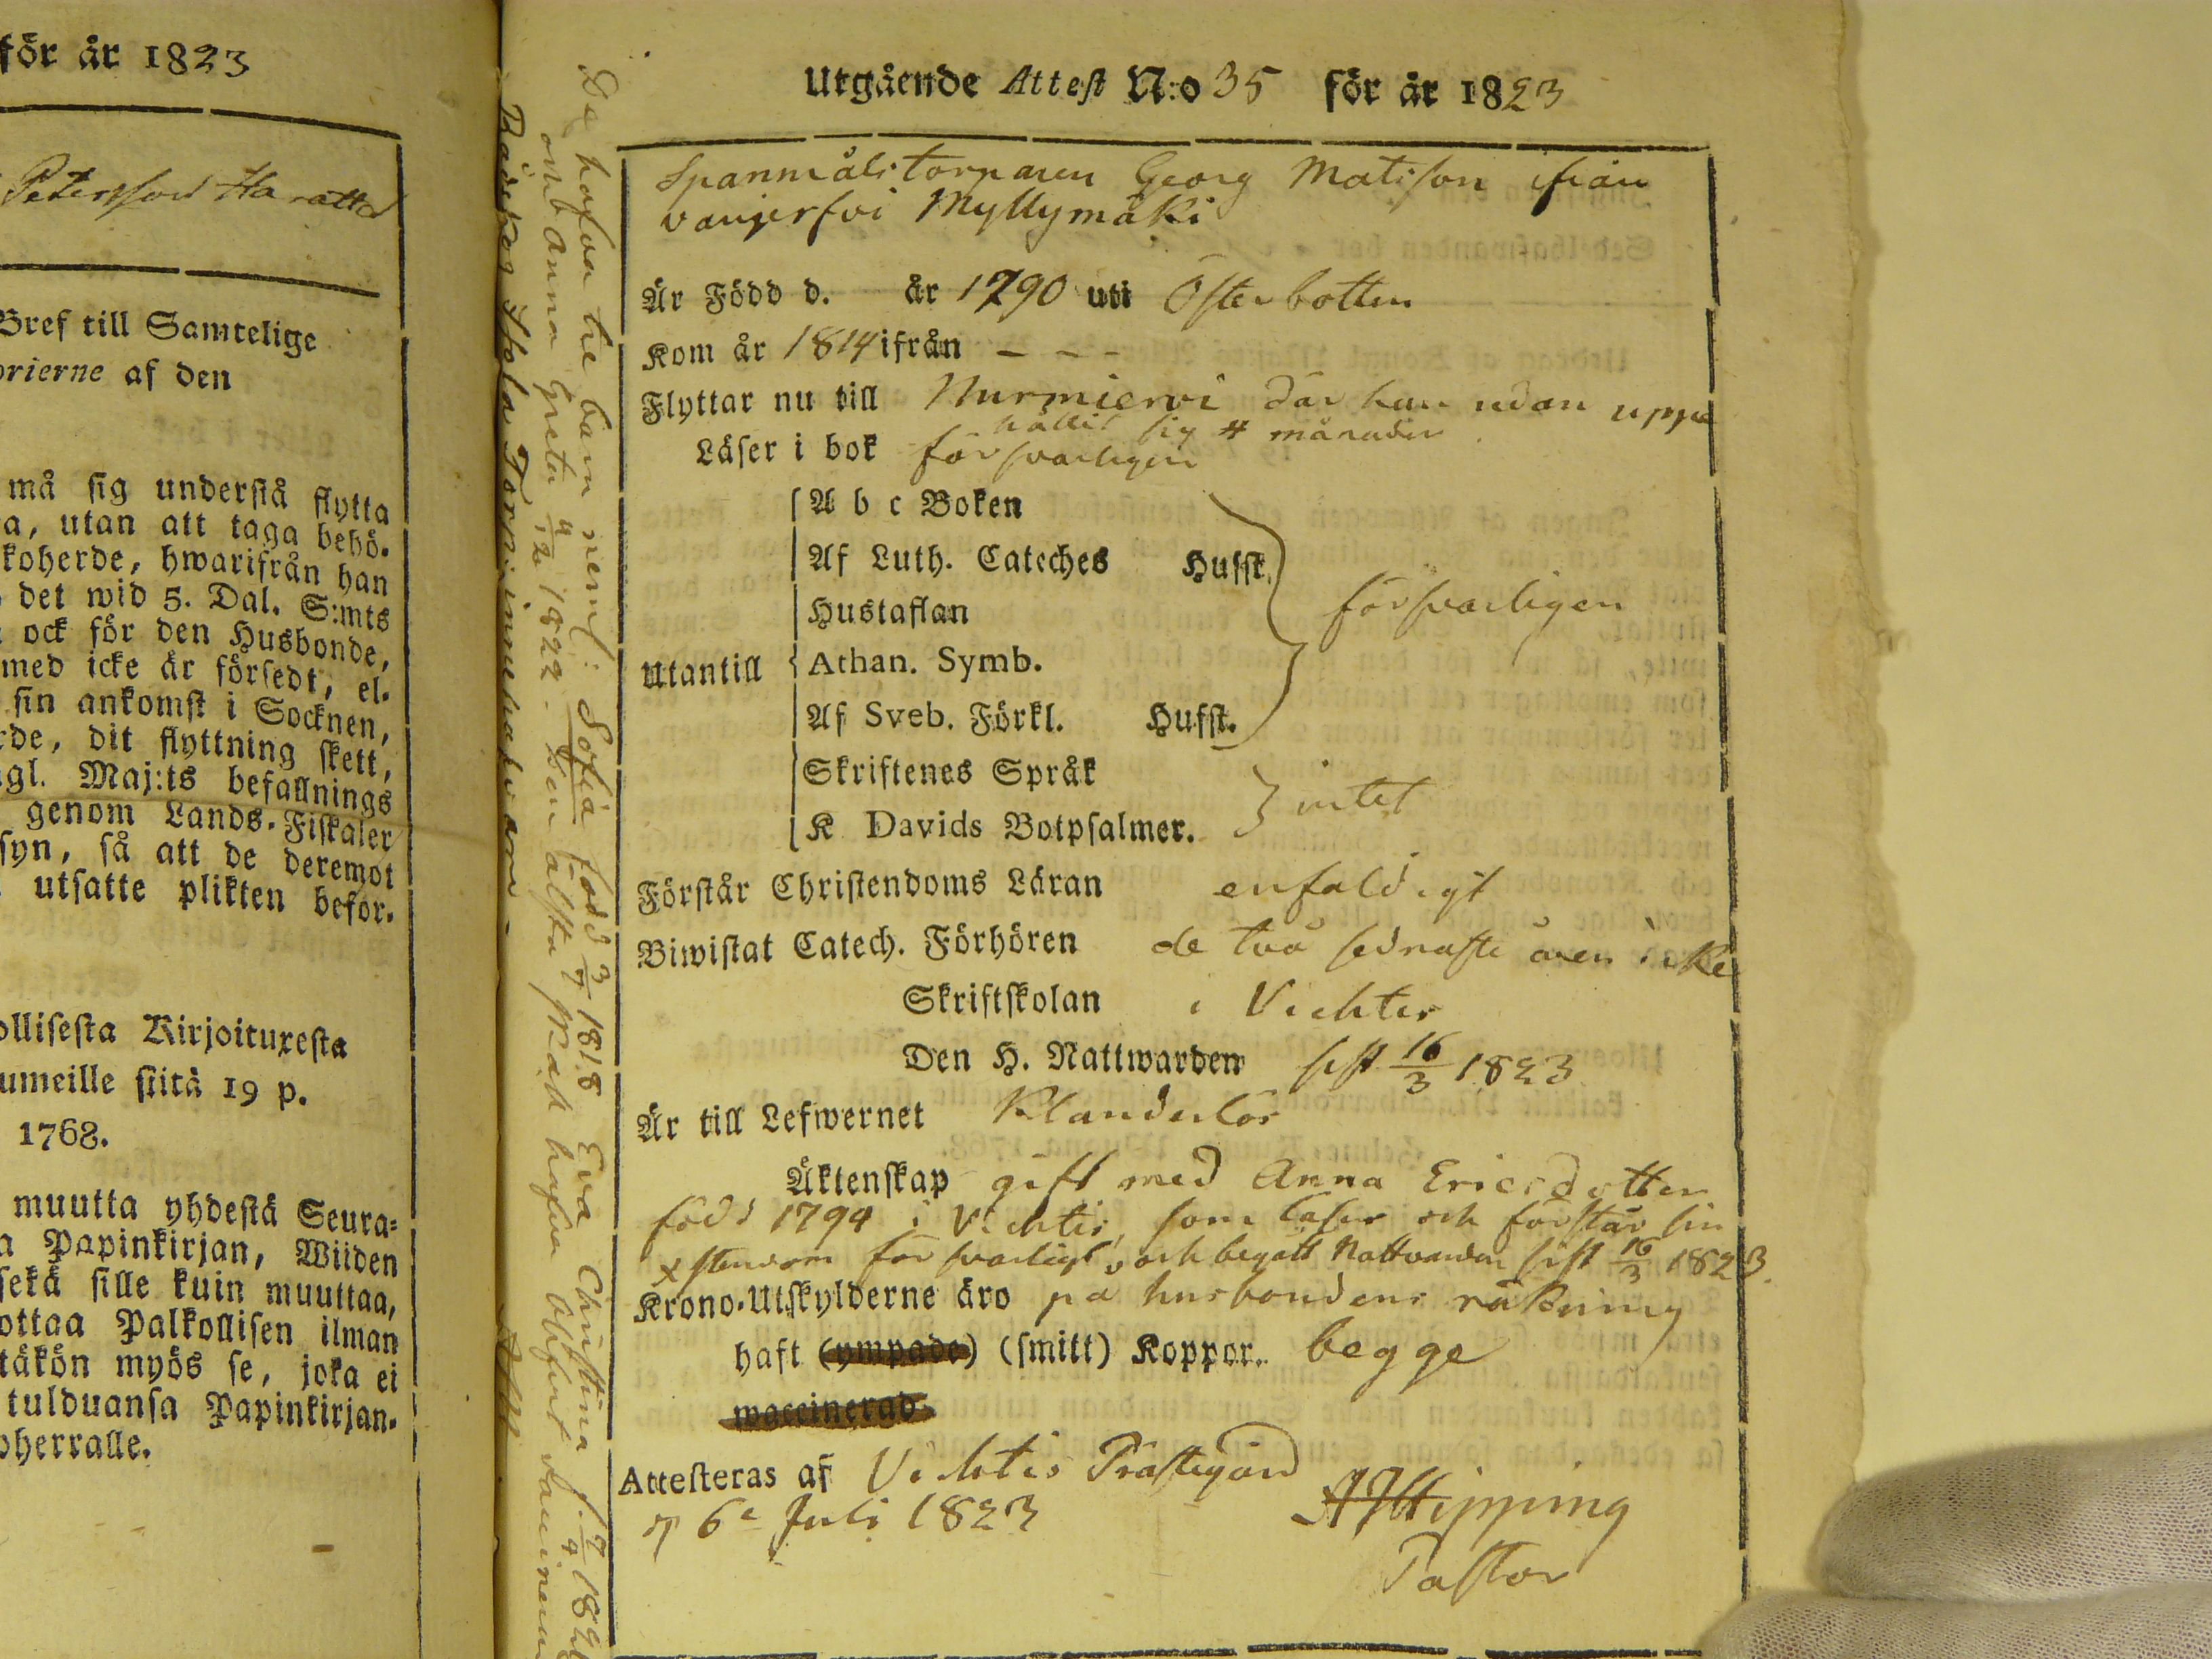 för år 1823
Petersson Haratta
Bref till Samtelige
orierne af den
må sig understå flytta
a, utan att taga behö-
koherde, hwarifrån han
det wid 5. Dal. S:mts
ock för den Husbonde,
med icke är försedt, el-
sin ankomst i Socknen,
rde, dit flyttning skett,
gl. Maj:ts befallnings
genom Lands-Fiskaler
syn, så att de deremot
utsatte plikten befor-
ollisesta Kirjoituxesta
umeille siitä 19 p.
1768.
muutta yhdestä Seura-
a Papinkirjan, Wiiden
sekä sille kuin muuttaa,
ottaa Palkollisen ilman
täkön myös se, joka ei
tulduansa Papinkirjan-
oherralle.
De hafva tre barn neml: Sofia född 3/7 1818 Eva Christina f. 2/4 182
omb Anna Greta 4/12 1822. Den älsta
Utgående Attest N:o 35 för år 1823
Spanmålstorparen Georg Matsson ifrån
vanjerfvi Myllymäki
Är Född d. år 1790 uti Österbotten
Kom år 1814 ifrån - - -
Flyttar nu till Nurmiervi där han redan uppe
hållit sig 4 månader
Läser i bok försvarligen
A b c Boken
Af Luth. Cateches Hufst.
Hustaflan försvarligen
Utantill Athan. Symb.
Af Sveb. Förkl. Hufst.
Skriftenes Språk
intet
K Davids Botpsalmer.
Förstår Christendoms Läran enfaldigt
Biwistat Catech. Förhören de två sednaste åren icke
Skriftskolan i Vichtis
Den H. Nattwarden sist 16/3 1823
Är till Lefwernet Klanderlös
Äktenskap gift med Anna Ericsdotter
född 1794 i Vichtis, som läser och förstår sin
xstendom försvarligt, och begått Nattvarden sist 16/3 1823.
Krono-Utskylderne äro på husbondens räkning
haft (ympade) (smitt) Koppor. begge
waccinerad
Attesteras af Vichtis Prästegård
d 6e Juli 1823
AJHipping
Pastor